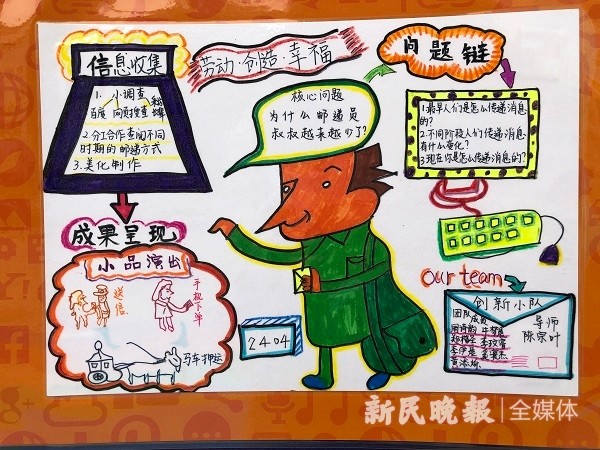 信息收集
1. 小调查
百度 问卷搜查
2.分工合作查阅不同
时期的邮递方式
3.美化制作
劳动·创造·幸福
问题链
核心问题
为什么邮递员
叔叔越来越少了?
1.最早人们是怎么传递消息
的?
2.不同阶段人们传递消息
有什么变化?
3.现在你是怎么传递消息的?
成果呈现
小品演出
送信
手机下单
马车押运
2404
our team
创新小队
团队成员
导师
陈宗叶
新民晚报 全媒体